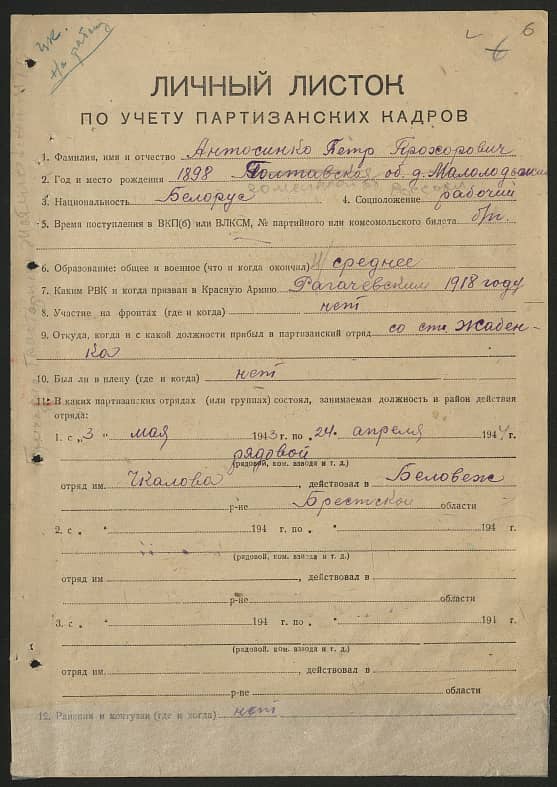 цк.
На работу
6
6
ЛИЧНЫЙ ЛИСТОК
ПО УЧЕТУ ПАРТИЗАНСКИХ КАДРОВ
1. Фамилия, имя и отчество Антосинко Петр Прохорович
2. Год и место рождения 1898 Полтавская об. д.
3. Национальность Белорус 4. Соцположение рабочий
5. Время поступления в ВКП(б) или ВЛКСМ, № партийного или комсомольского билета б/п.
6. Образование: общее и военное (что и когда окончил) среднее
7. Каким РВК и когда призван в Красную Армию Рагачевским 1918 году
8. Участие на фронтах (где и когда) нет
9. Откуда, когда и с какой должности прибыл в партизанский отряд со сти Жабен-
ка
10. Был ли в плену (где и когда) нет
11. В каких партизанских отрядах (или группах) состоял, занимаемая должность и район действия
отряда:
1. с „3 " мая 1943 г. по „ 24 " апреля 1944 г.
рядовой
(рядовой, ком. взвода и т. д.)
отряд им. Чкалова , действовал в Беловеж
р-не Брестской области
2. с „ " 194 г. по „ " 194 г.
(рядовой, ком. взвода и т. д.)
отряд им. , действовал в
р-не области
3. с „ " 194 г. по „ " 194 г.
(рядовой, ком. взвода и т. д.)
отряд им. , действовал в
р-не области
12. Ранения и контузии (где и когда) нет